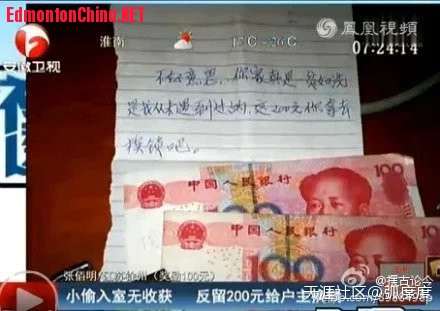 EdmontonChina.NET
安徽卫视
淮南
17℃~26℃
凤凰视频
07:24:14
不好意思，你家真是一贫如洗
是我从未遇到过的，这200元你拿去
换锁吧。
中国人民银行
100
中国人民银行
100
张佰明
(奖励100元)
小偷入室无收获 反留200元给户主
天涯社区@弧度度